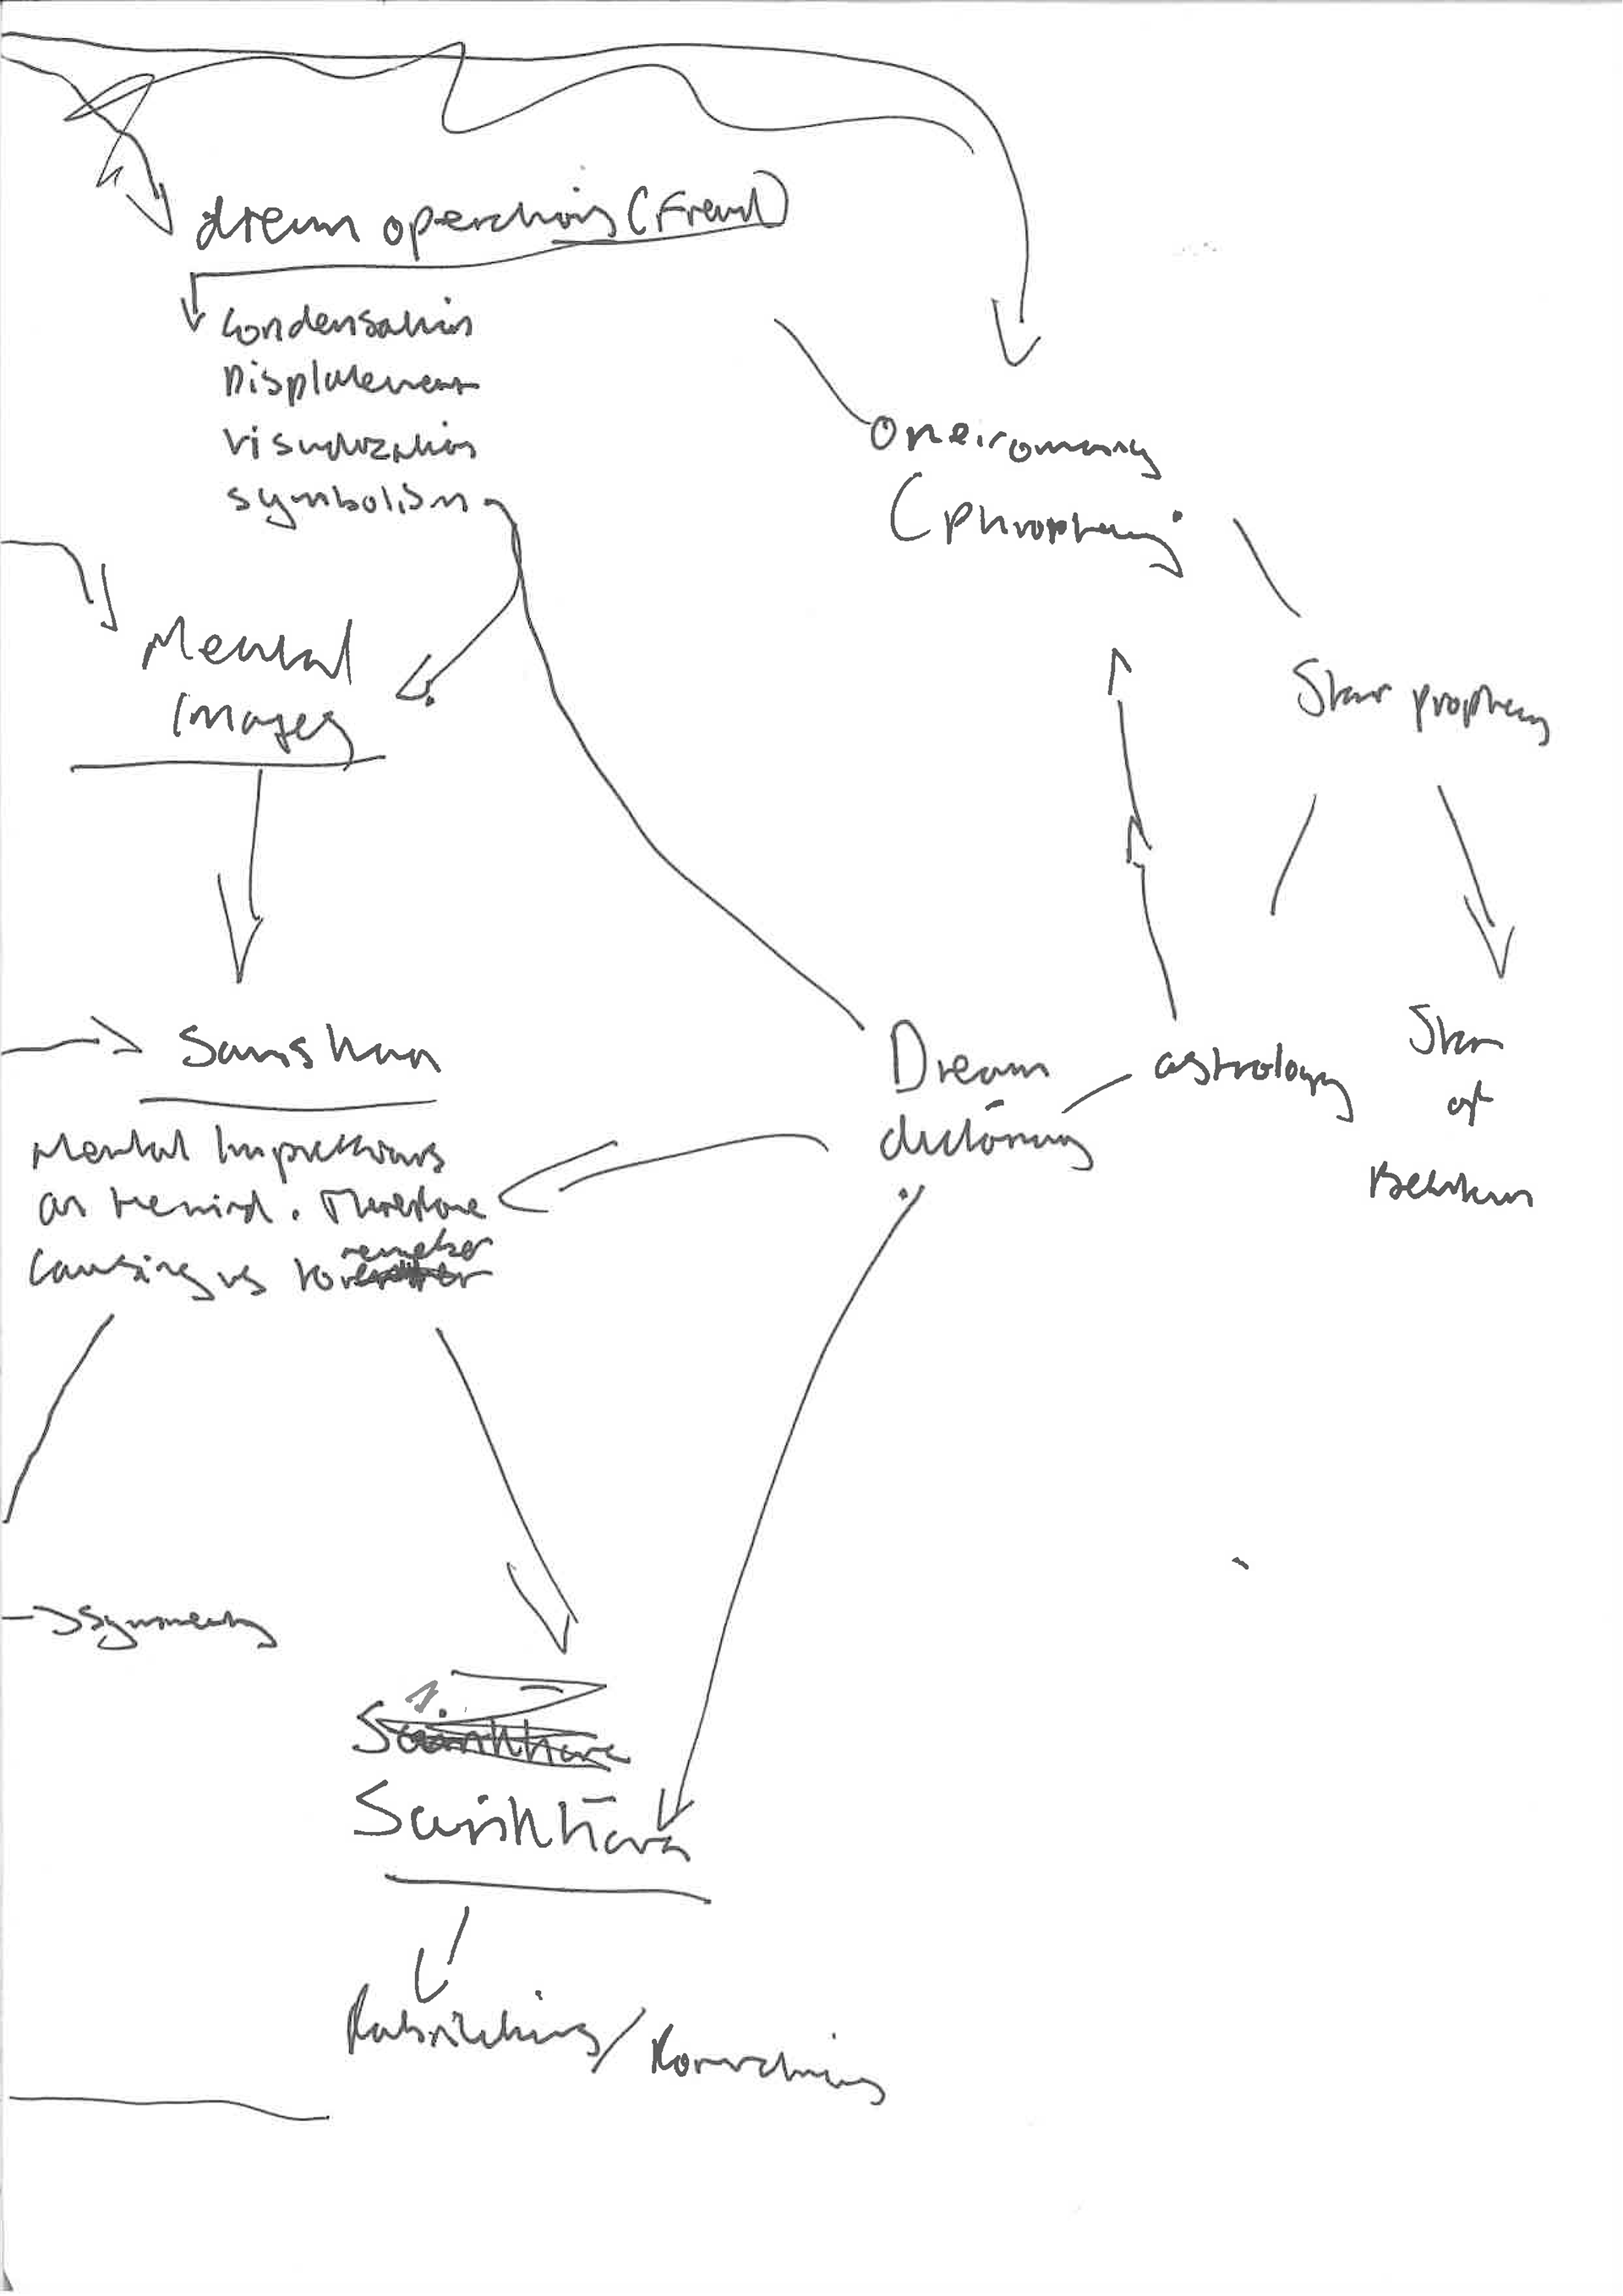 dream operations (Freud)
Condensation
Displacement
visualization
symbolism
Oneiromancy
(phrophecy)
Mental
Images
Star prophecy
Sanskara
Dream
dictionary
astrology
Star
of
Mental Impressions
on the mind. Therefore
causing us to
remember
symmetry
Sankhara
Sankhāra
Fabrications/Formations